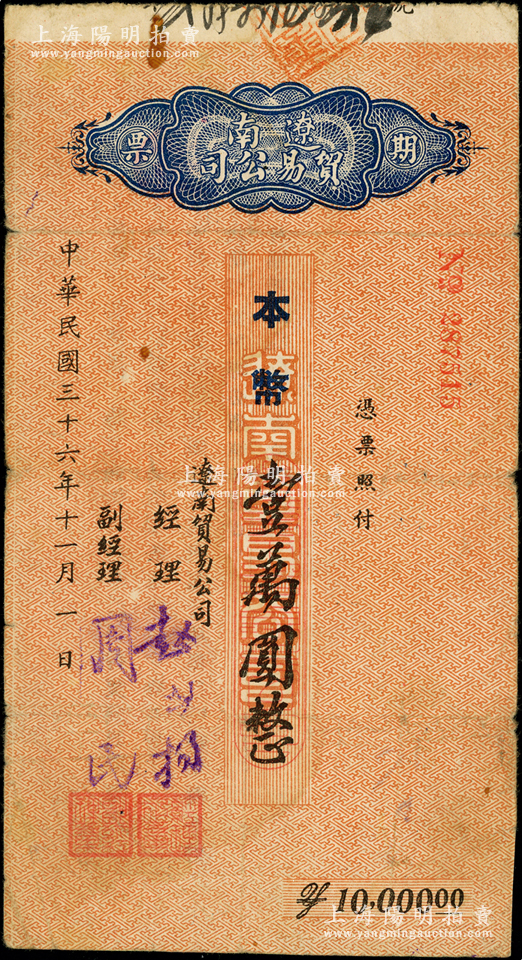 上海陽明拍賣
www.yangmingauction.com
期票
遼南
貿易公司
№ 287515
憑票照付
本幣
壹萬圓整
遼南貿易公司
經理
副經理
周
民
中華民國三十六年十一月一日
上海陽明拍賣
www.yangmingauction.com
¥ 10,000.00
上海陽明拍賣
www.yangmingauction.com